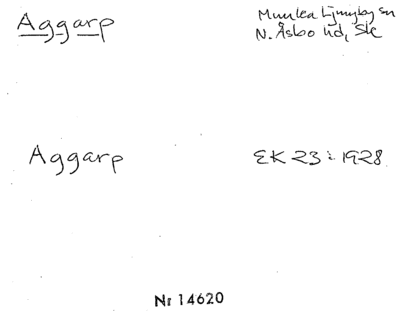 Aggarp
Munka Ljungby sn
N. Åsbo hd, Sk
Aggarp
EK 23: 1928
Nr 14620